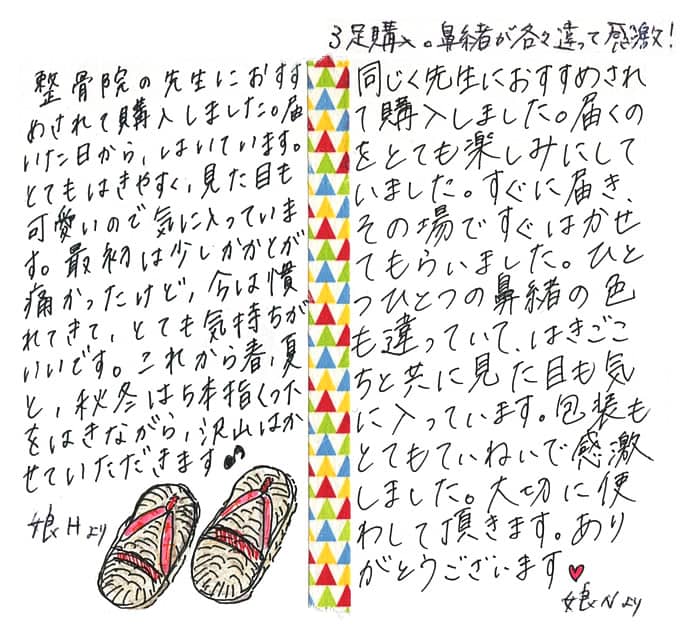 3足購入。鼻緒が各々違って感激!
整骨院の先生におすす
めされて購入しました。届
いた日から、はいています。
とてもはきやすく、見た目も
可愛いので気に入っていま
す。最初は少しかかとが
痛かったけど、今は慣
れてきて、とても気持ちが
いいです。これから春、夏
と、秋冬は5本指くつた
をはきながら、沢山はか
せていただきます♪
娘Hより
同じく先生におすすめされ
て購入しました。届くの
をとても楽しみにして
いました。すぐに届き、
その場ですぐはかせ
てもらいました。ひと
つひとつの鼻緒の色
も違っていて、はきごこ
ちと共に見た目も気
に入っています。包装も
とてもていねいで感激
しました。大切に使
わして頂きます。あり
がとうございます♥
娘Nより